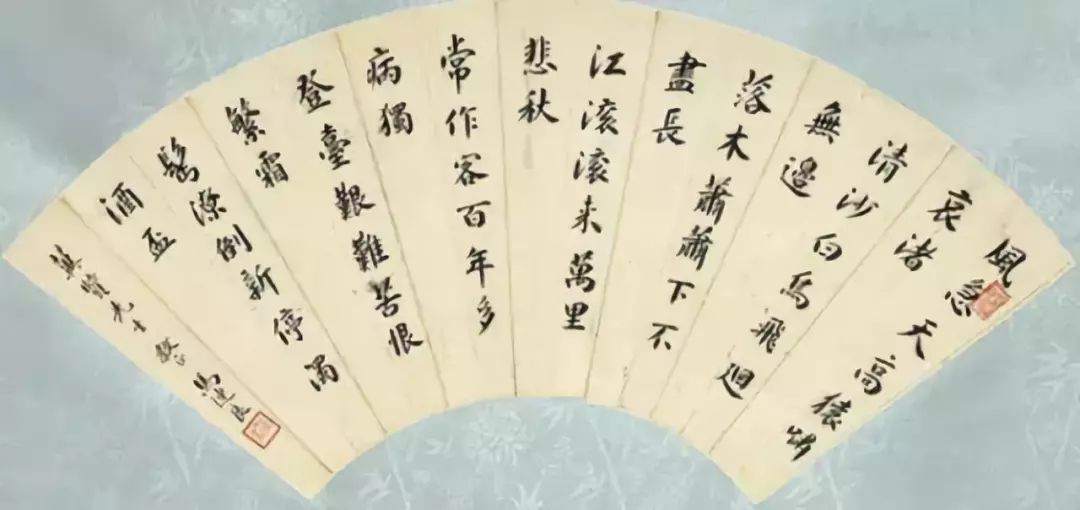 風急天高猿嘯
哀渚
清沙白鳥飛迴
無邊
落木蕭蕭下不
盡長
江滚滚来萬里
悲秋
常作客百年多
病獨
登臺艱難苦恨
繁霜
鬓潦倒新停濁
酒盃
先生